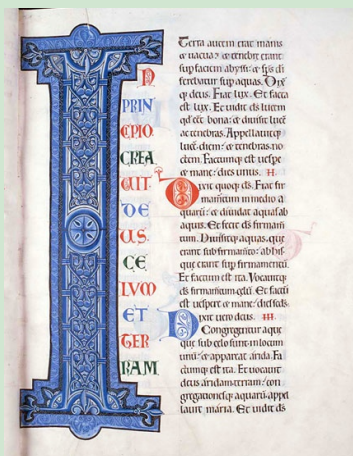 IN
PRIN
CIPIO.
CREA
UIT.
DE
US.
CE
LVM
ET
TER
RAM
Terra autem erat inanis
& uacua: & tenebre erant
sup faciem abyssi: & sps di
ferebatur sup aquas. Dixit
q; deus. Fiat lux. Et facta
est lux. Et uidit ds lucem
qd eet bona: & diuisit lucē
ac tenebras. Appellauitq;
lucē diem: & tenebras no
ctem. Factumq; est uespe
& mane: dies unus. II.
Dixit quoq; ds. Fiat fir
mamtum in medio a
quarū: & diuidat aquas ab
aquis. Et fecit ds firmam
tum. Diuisitq; aquas, que
erant sub firmamto: ab his
que erant sup firmamentū.
Et factum est ita. Vocauitq;
ds firmamtum celū. Et factū
est uespere & mane: dies scds
Dixit uero deus. III.
Congregentur aque
que sub celo sunt in locum
unū: & appareat arida. Fa
ctumq; est ita. Et uocauit
deus aridam terram: con
gregationesq; aquarū appel
lauit maria. Et uidit ds